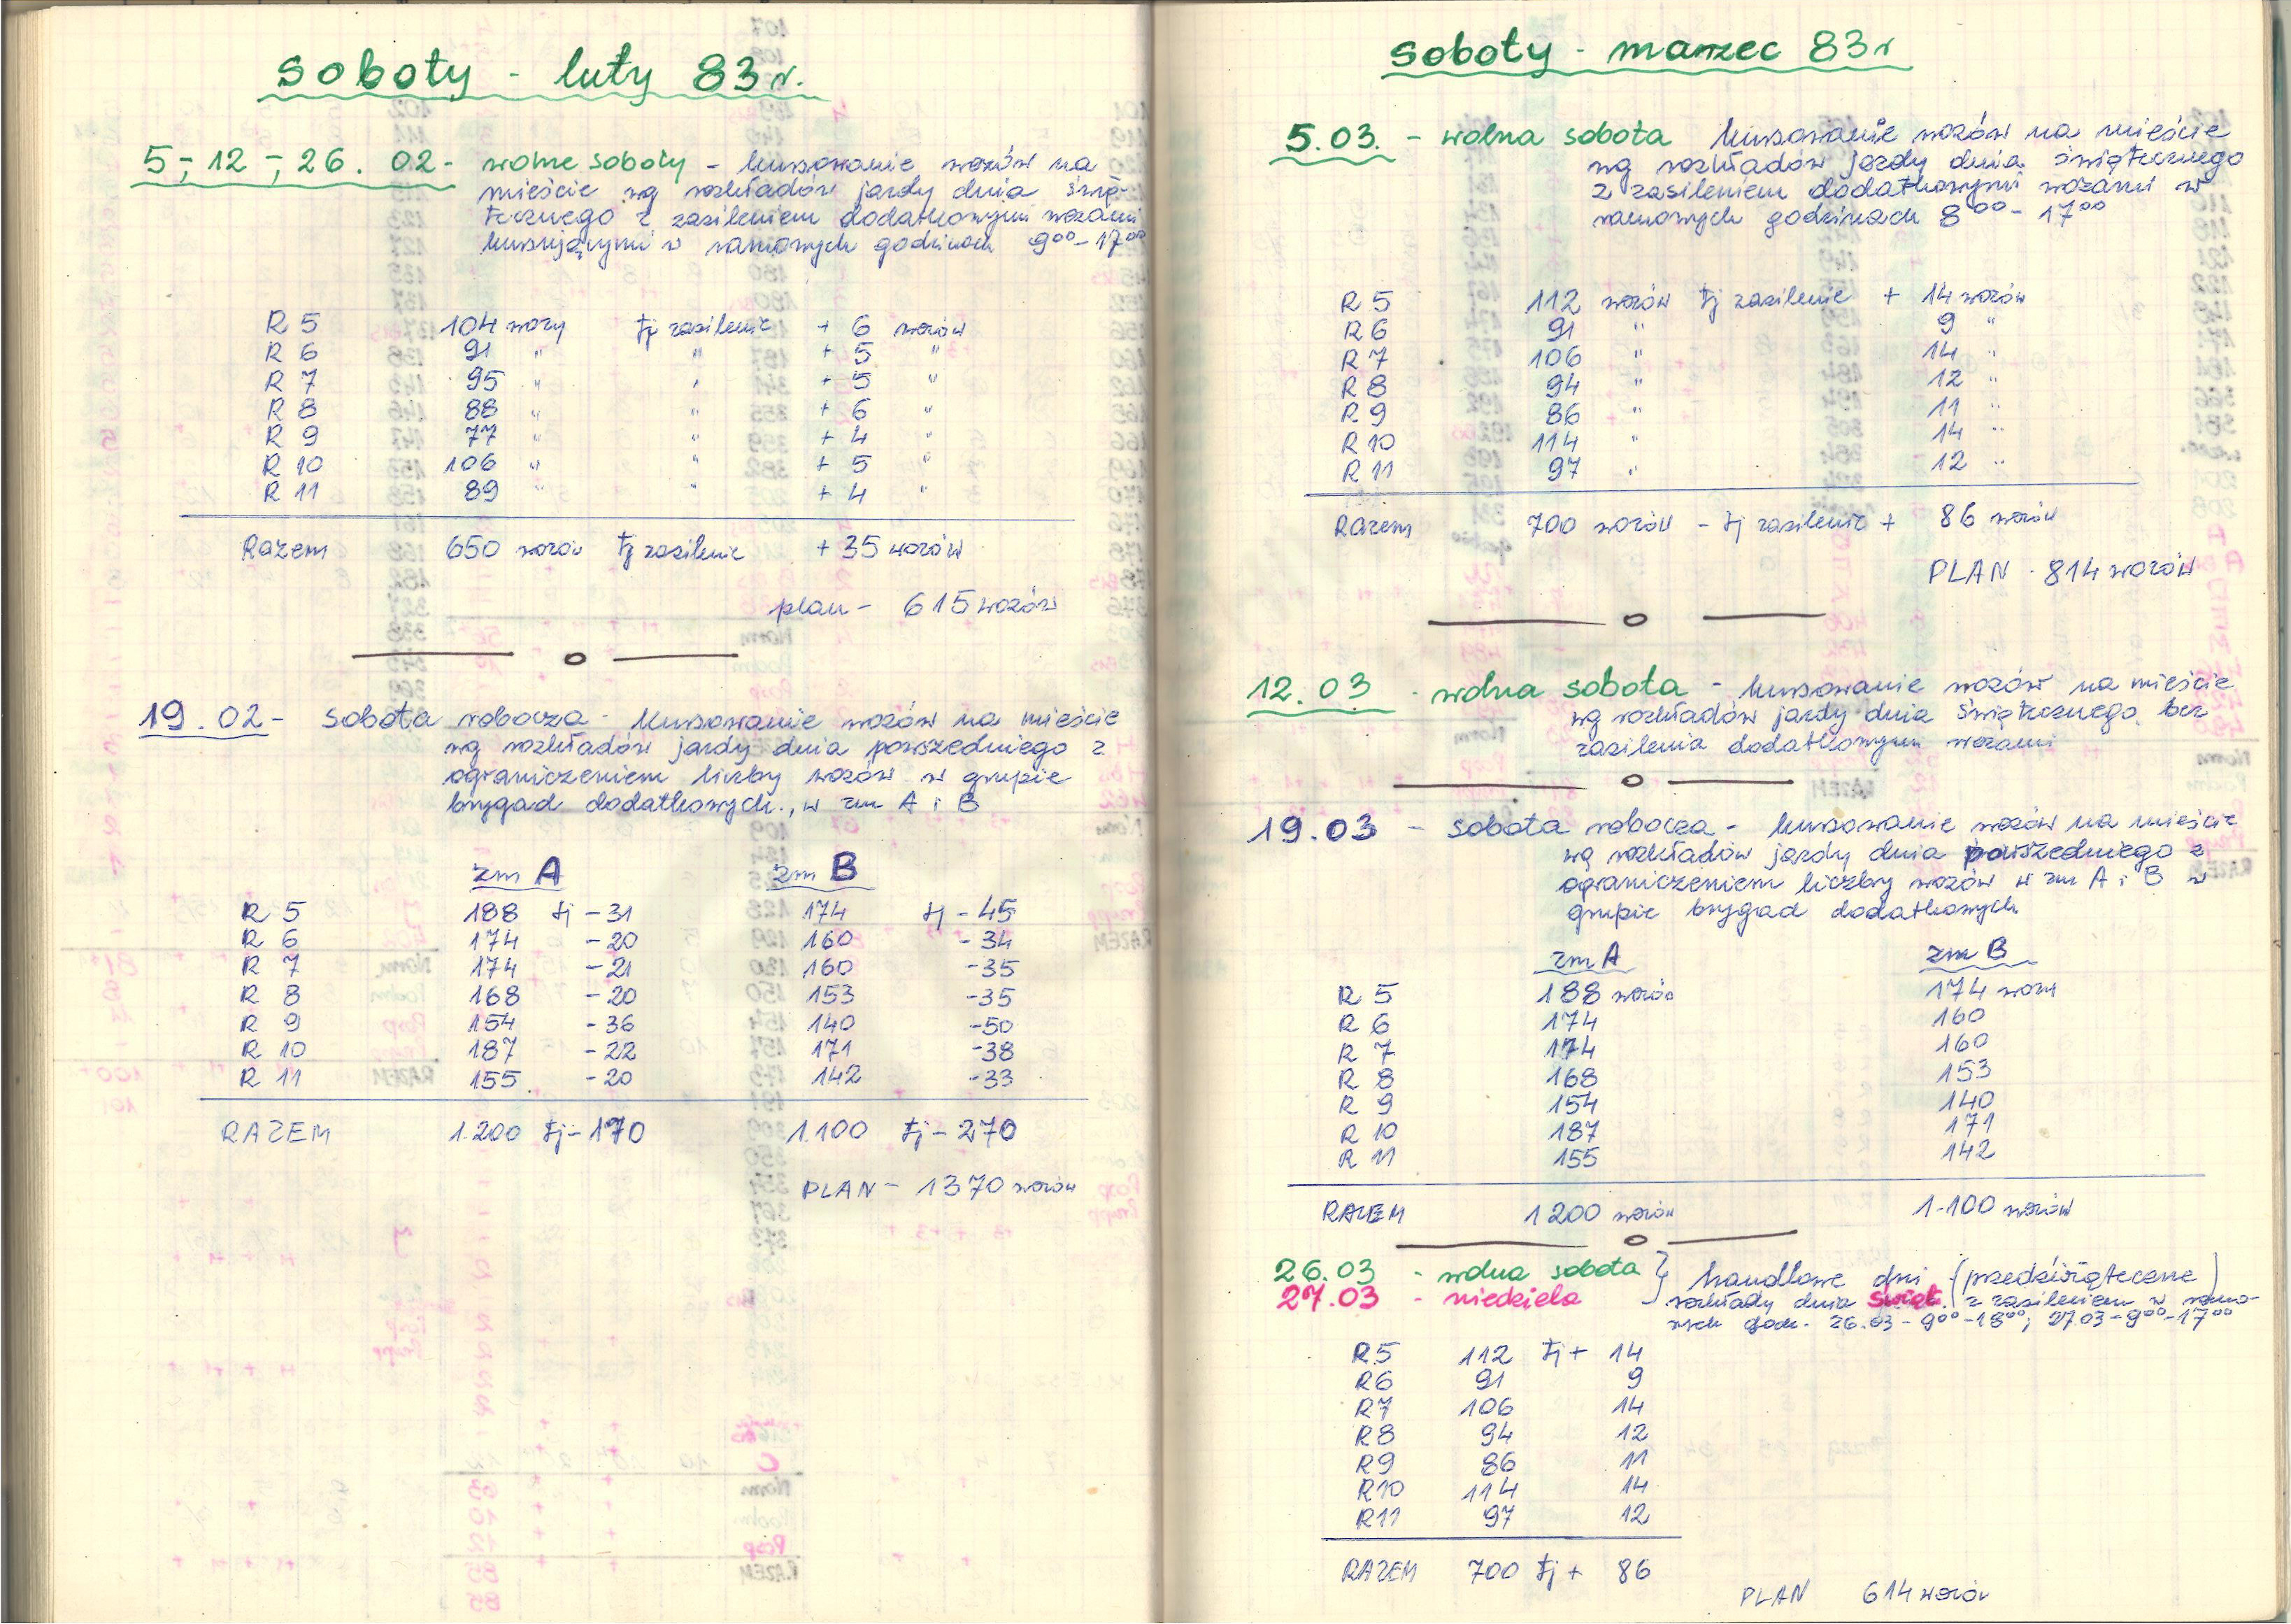 soboty - luty 83 r.
5,- 12 -,- 26. 02 - wolne soboty - kursowanie wozów na
mieście wg rozkładów jazdy dnia świą-
tecznego z zasileniem dodatkowymi wozami
kursującymi w ramowych godzinach 9⁰⁰-17⁰⁰
R 5 104 wozy tj zasilenie + 6 wozów
R 6 91 " " + 5 "
R 7 95 " " + 5 "
R 8 88 " " + 6 "
R 9 77 " " + 4 "
R 10 106 " " + 5 "
R 11 89 " " + 4 "
Razem 650 wozów tj zasilenie + 35 wozów
plan - 615 wozów
19.02 - sobota robocza - kursowanie wozów na mieście
wg rozkładów jazdy dnia powszedniego z
ograniczeniem liczby wozów w grupie
brygad dodatkowych., w zm A i B
zm A zm B
R 5 188 tj - 31 174 tj - 45
R 6 174 - 20 160 - 34
R 7 174 - 21 160 - 35
R 8 168 - 20 153 - 35
R 9 154 - 36 140 - 50
R 10 187 - 22 171 - 38
R 11 155 - 20 142 - 33
RAZEM 1.200 tj - 170 1.100 tj - 270
PLAN - 1370 wozów
soboty - marzec 83 r
5.03. - wolna sobota kursowanie wozów na mieście
wg rozkładów jazdy dnia świątecznego
z zasileniem dodatkowymi wozami w
ramowych godzinach 8⁰⁰ - 17⁰⁰
R 5 112 wozów tj zasilenie + 14 wozów
R 6 91 " 9 "
R 7 106 " 14 "
R 8 94 " 12 "
R 9 86 " 11 "
R 10 114 " 14 "
R 11 97 " 12 "
Razem 700 wozów - tj zasilenie + 86 wozów
PLAN - 814 wozów
12.03 - wolna sobota - kursowanie wozów na mieście
wg rozkładów jazdy dnia świątecznego bez
zasilenia dodatkowymi wozami
19.03 - sobota robocza - kursowanie wozów na mieście
wg rozkładów jazdy dnia powszedniego z
ograniczeniem liczby wozów w zm A i B w
grupie brygad dodatkowych
zm A zm B
R 5 188 wozów 174 wozy
R 6 174 160
R 7 174 160
R 8 168 153
R 9 154 140
R 10 187 171
R 11 155 142
RAZEM 1200 wozów 1.100 wozów
26.03 - wolna sobota } handlowe dni (przedświąteczne)
27.03 - niedziela rozkłady dnia świąt. z zasileniem w ramo-
wych godz. 26.03 - 9⁰⁰-18⁰⁰, 27.03 - 9⁰⁰-17⁰⁰
R5 112 tj + 14
R6 91 9
R7 106 14
R8 94 12
R9 86 11
R10 114 14
R11 97 12
RAZEM 700 tj + 86
PLAN 614 wozów